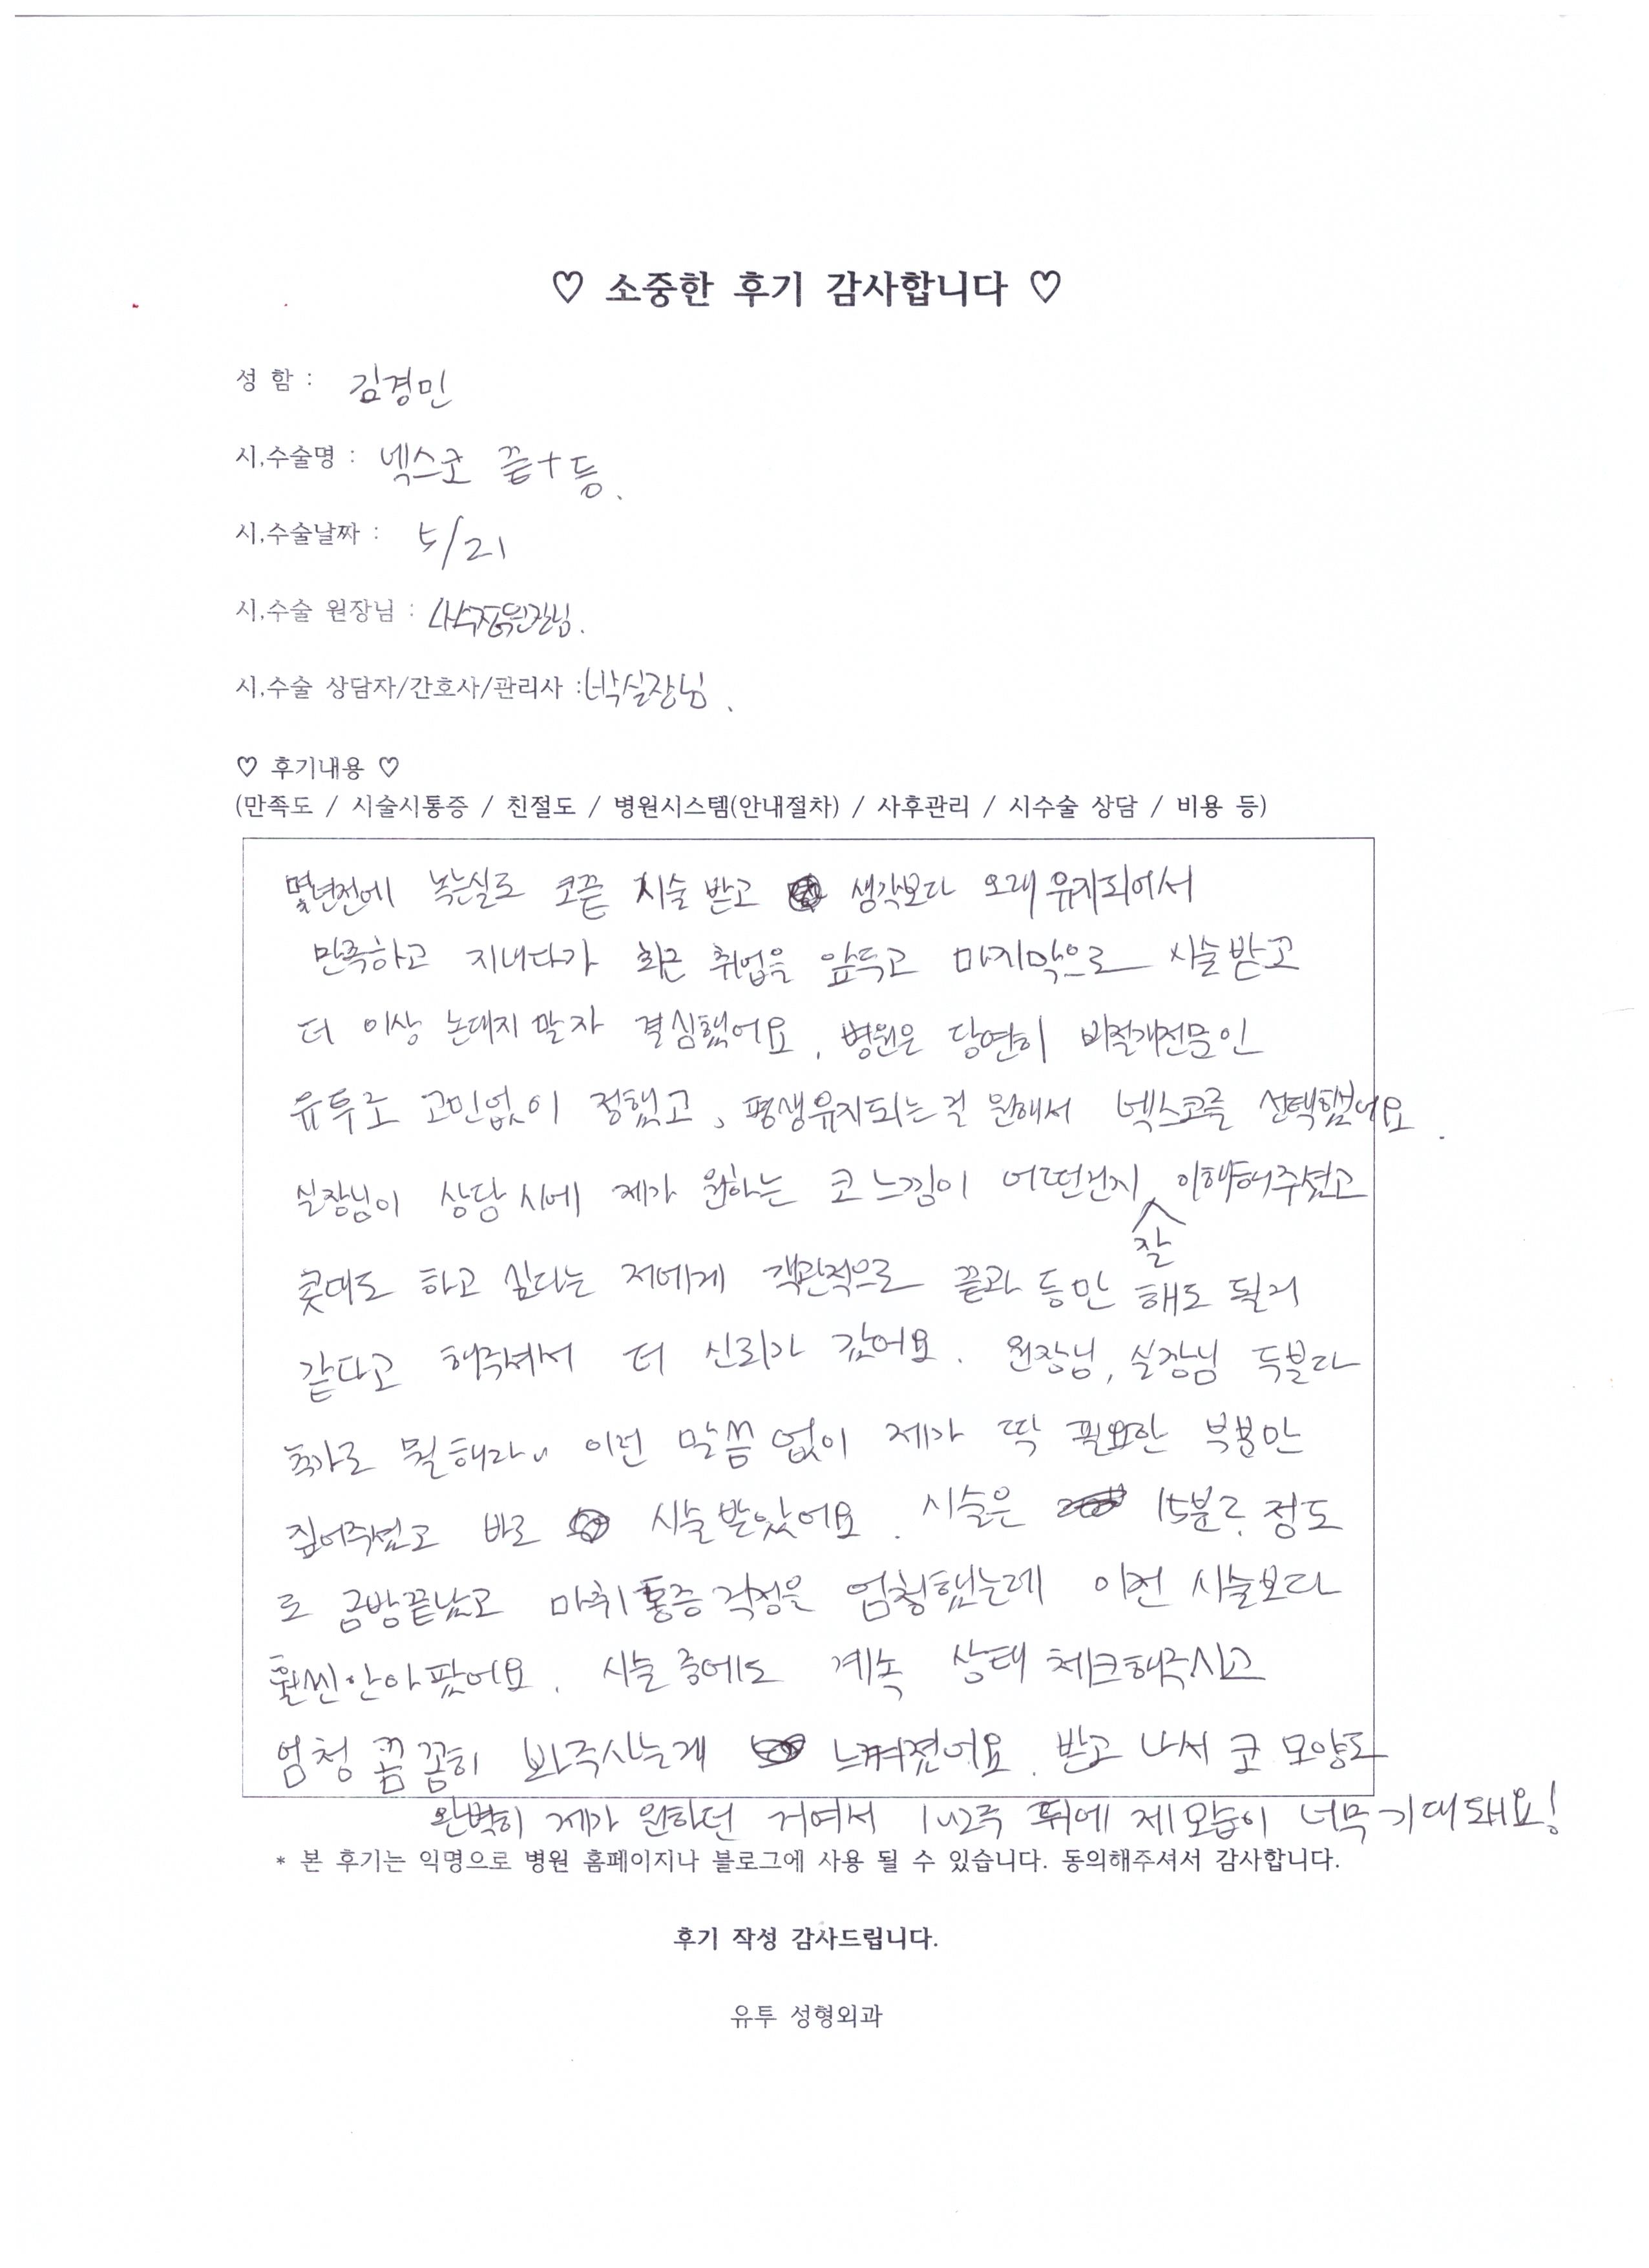 ♡ 소중한 후기 감사합니다 ♡
성 함 : 김경민
시,수술명 : 넥스코 끝+등.
시,수술날짜 : 5/21
시,수술 원장님 :
시,수술 상담자/간호사/관리사 : 박실장님.
♡ 후기내용 ♡
(만족도 / 시술시통증 / 친절도 / 병원시스템(안내절차) / 사후관리 / 시수술 상담 / 비용 등)
몇년전에 녹는실로 코끝 시술 받고 생각보다 오래 유지되어서
만족하고 지내다가 최근 취업을 앞두고 마지막으로 시술받고
더 이상 손대지 말자 결심했어요. 병원은 당연히 비절개전문인
유투로 고민없이 정했고, 평생유지되는걸 원해서 넥스코를 선택했어요.
실장님이 상담 시에 제가 원하는 코 느낌이 어떤건지 잘 이해해주셨고
콧대도 하고 싶다는 저에게 객관적으로 끝과 등만 해도 될거
같다고 해주셔서 더 신뢰가 갔어요. 원장님, 실장님 두분다
추가로 뭘해라~ 이런 말씀 없이 제가 딱 필요한 부분만
짚어주셨고 바로 시술받았어요. 시술은 15분? 정도
로 금방끝났고 마취 통증 걱정을 엄청했는데 이전 시술보다
훨씬 안아팠어요. 시술 중에도 계속 상태 체크해주시고
엄청 꼼꼼히 봐주시는게 느껴졌어요. 받고 나서 코 모양도
완벽히 제가 원하던 거여서 1~2주 뒤에 제모습이 너무 기대돼요!
* 본 후기는 익명으로 병원 홈페이지나 블로그에 사용 될 수 있습니다. 동의해주셔서 감사합니다.
후기 작성 감사드립니다.
유투 성형외과